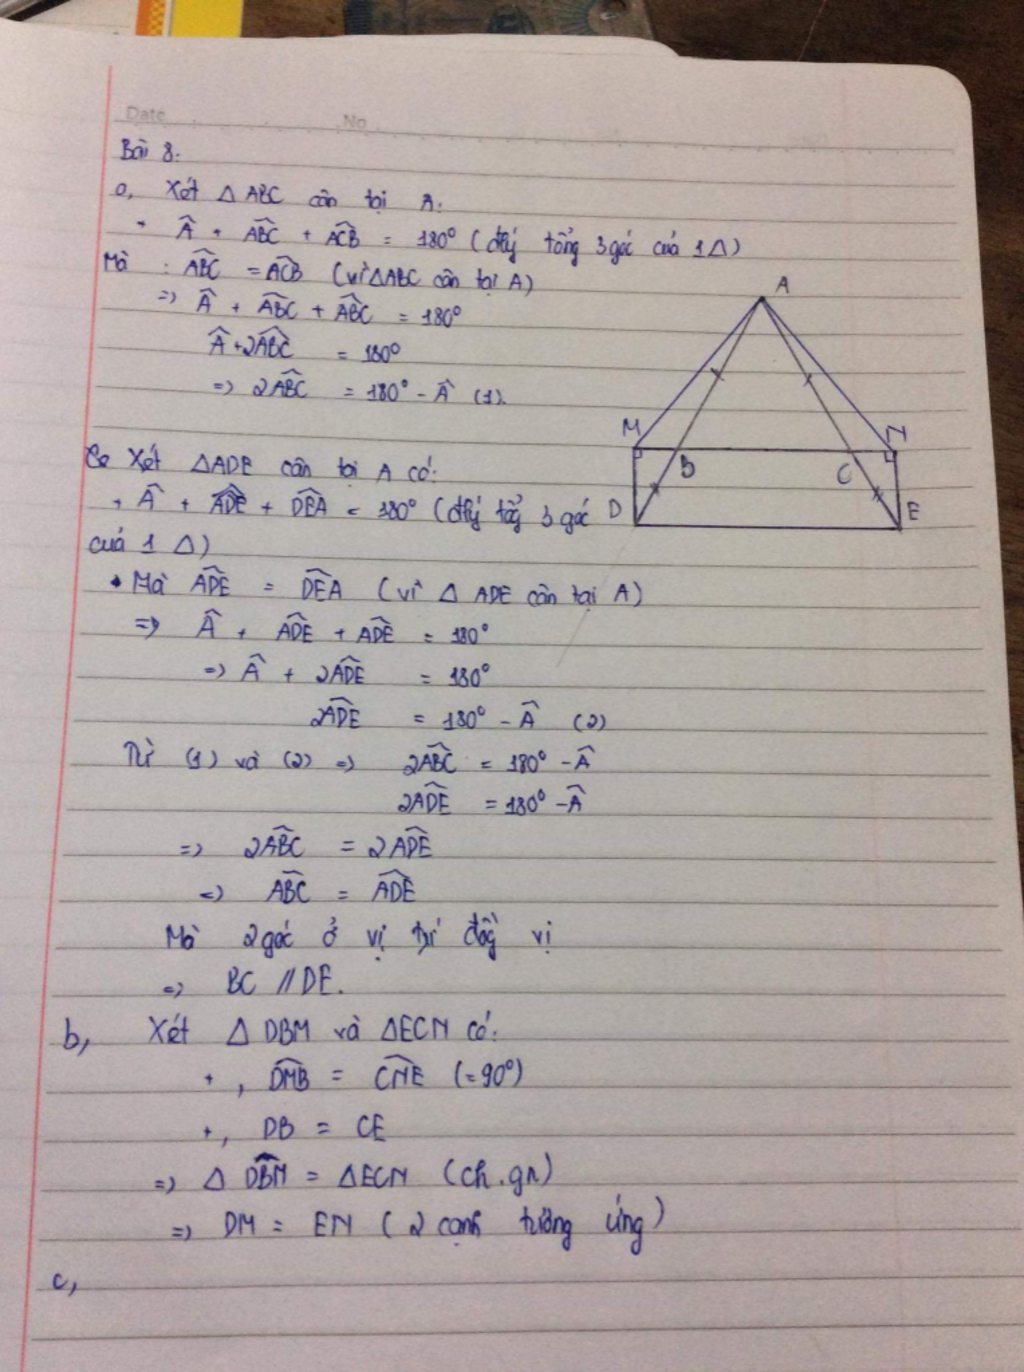 Date No
Bài 8:
a, Xét △ ABC cân tại A:
+ Â + ABC + ACB = 180° (đlý tổng 3 góc của 1 △)
Mà : ABC = ACB (vì △ABC cân tại A)
=> Â + ABC + ABC = 180°
Â + 2ABC = 180°
=> 2ABC = 180° - Â (1).
Xét △ADE cân tại A có:
+ Â + ADE + DEA = 180° (đlý tổg 3 góc
của 1 △)
• Mà ADE = DEA (vì △ ADE cân tại A)
=> Â + ADE + ADE = 180°
=> Â + 2ADE = 180°
2ADE = 180° - Â (2)
Từ (1) và (2) => 2ABC = 180° - Â
2ADE = 180° - Â
=> 2ABC = 2ADE
=> ABC = ADE
Mà 2 góc ở vị trí đồg vị
=> BC // DE.
b, Xét △ DBM và △ECN có:
+, DMB = CNE (=90°)
+, DB = CE
=> △ DBM = △ECN (ch.gn)
=> DM = EN (2 cạnh tương ứng)
c,
A
M N
B C
D E